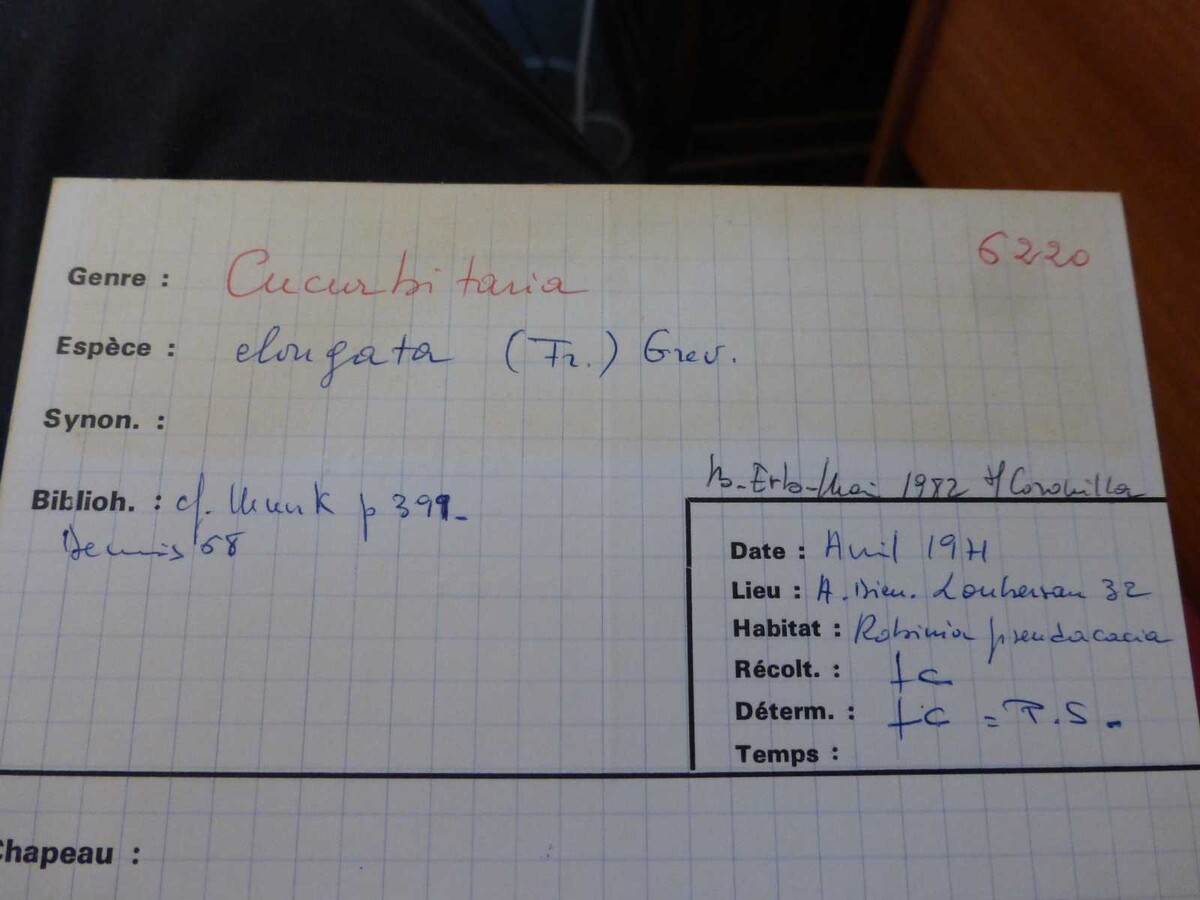 6220
Genre : Cucurbitaria
Espèce : elongata (Fr.) Grev.
Synon. :
Biblioh. : cf. Munk p 399-
Dennis 68
Mai 1982 Coronilla
Date : Avril 1971
Lieu : A. Dieu. Loubersan 32
Habitat : Robinia pseudacacia
Récolt. : fc
Déterm. : fc = T.S-
Temps :
Chapeau :